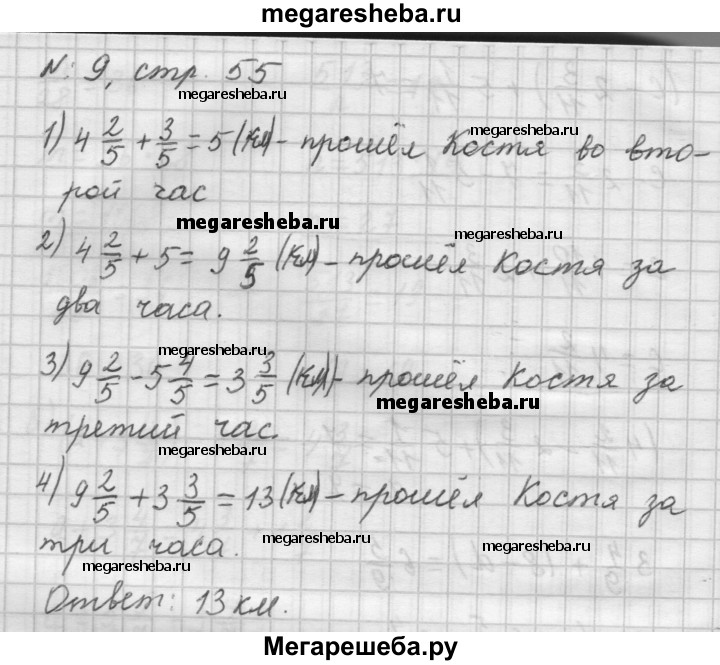 megaresheba.ru
№: 9, стр. 55
megaresheba.ru
1) 4 2/5 + 3/5 = 5 (км) - прошёл Костя во вто-
megaresheba.ru
рой час
megaresheba.ru
megaresheba.ru
2) 4 2/5 + 5 = 9 2/5 (км) - прошёл Костя за
два часа.
megaresheba.ru
3) 9 2/5 - 5 4/5 = 3 3/5 (км) - прошёл Костя за
megaresheba.ru
третий час.
megaresheba.ru
4) 9 2/5 + 3 3/5 = 13 (км) - прошёл Костя за
три часа.
megaresheba.ru
megaresheba.ru
megaresheba.ru
Ответ: 13 км.
Мегарешеба.ру